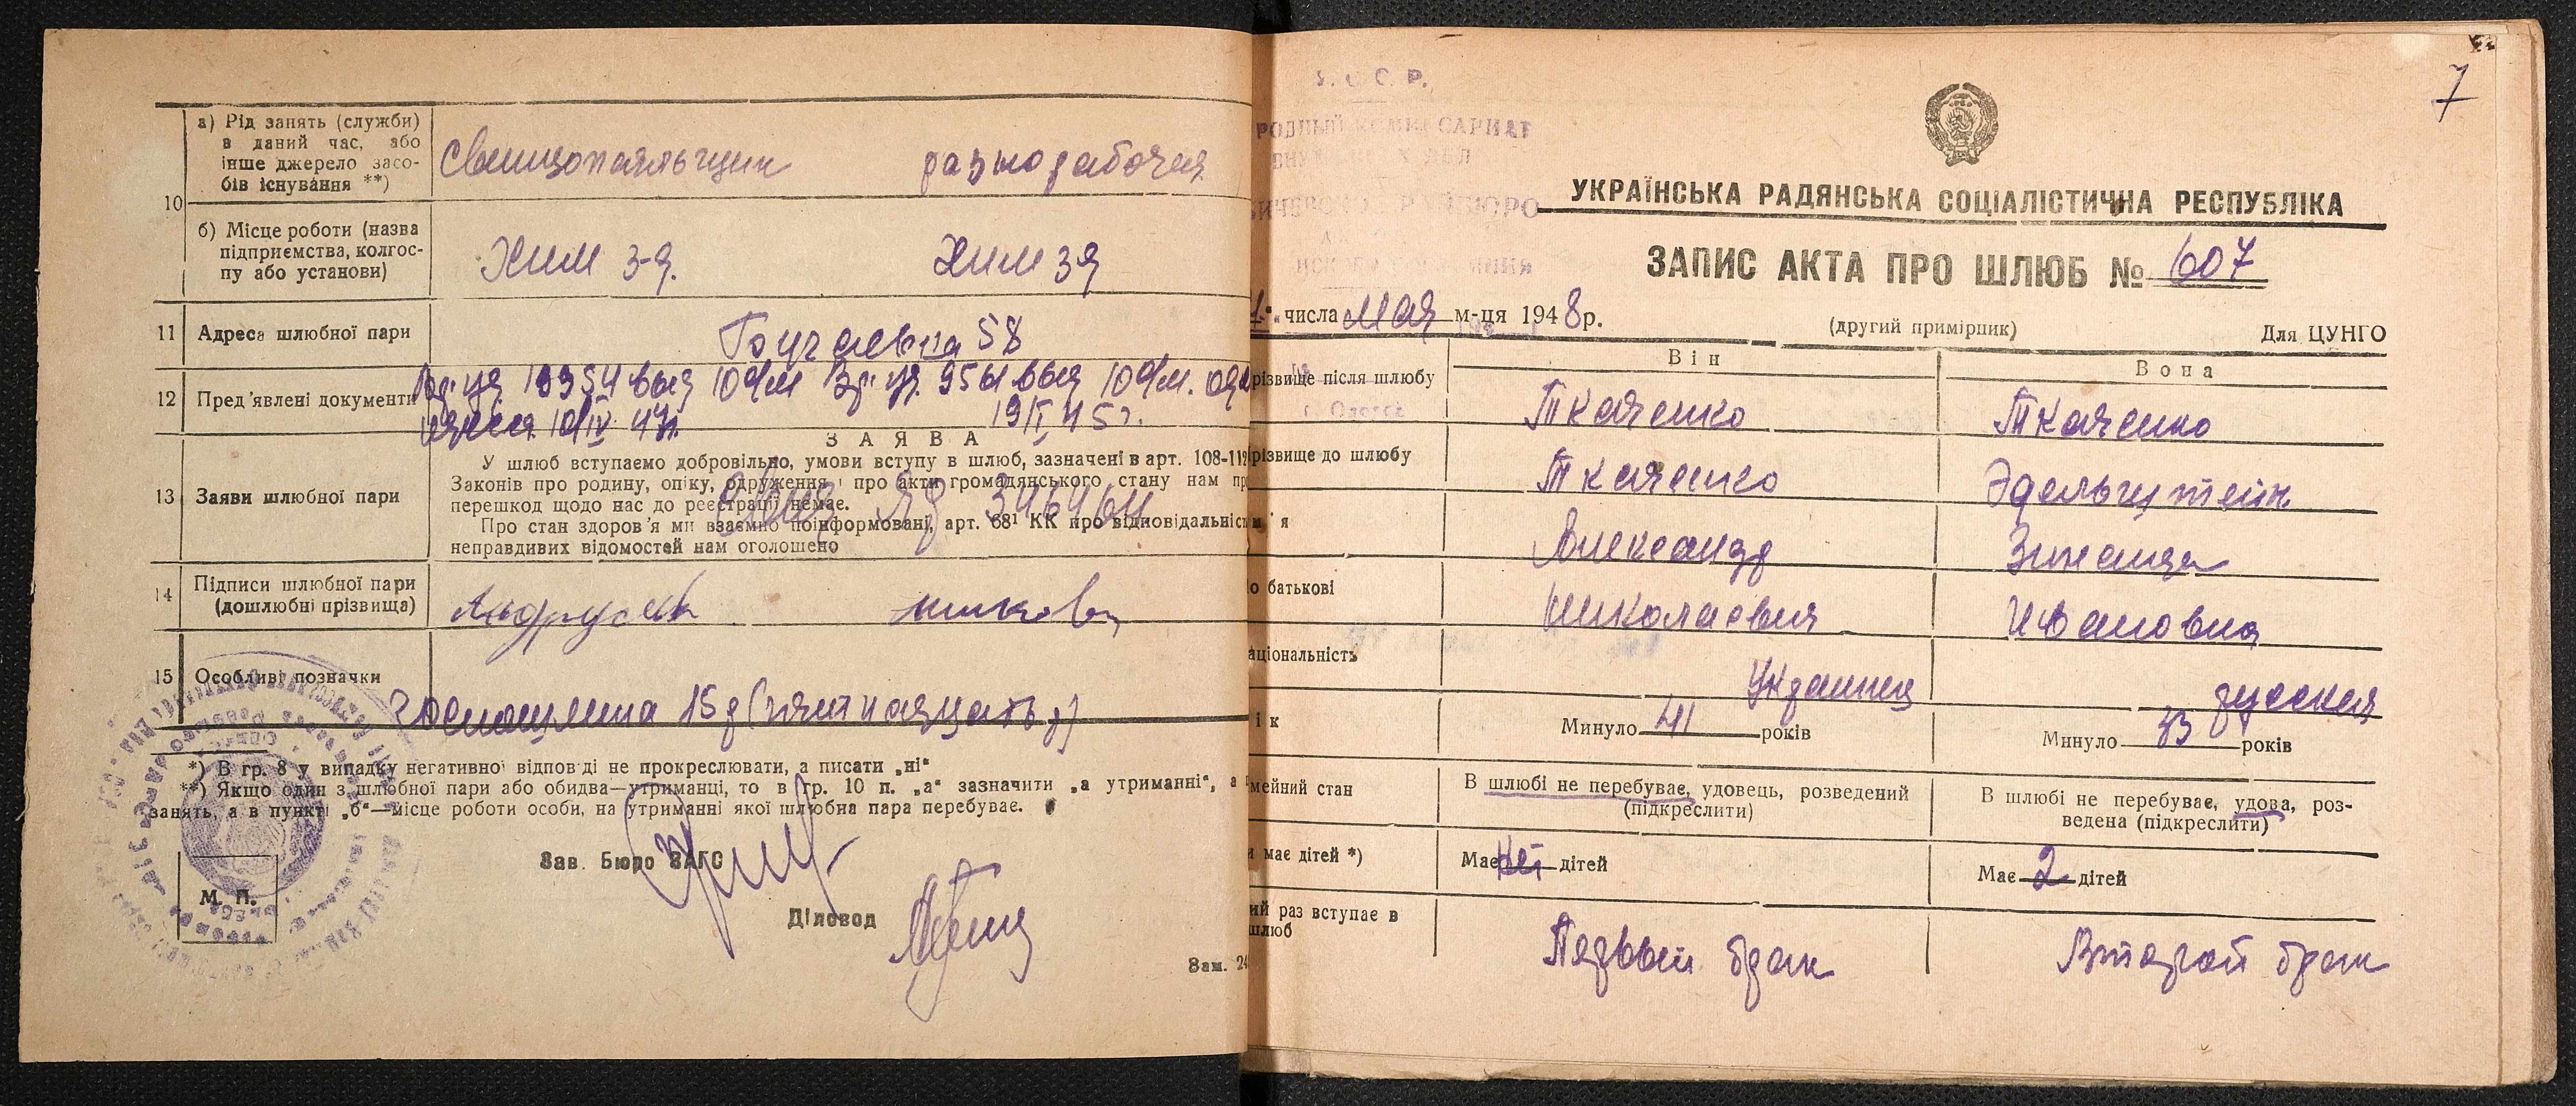 10
а) Рід занять (служби)
в даний час, або
інше джерело засо-
бів існування **)
разнорабочая
б) Місце роботи (назва
підприємства, колгос-
пу або установи)
Хим з-д.
Хим зд
11
Адреса шлюбної пари
58
12
Пред'явлені документи
10 о/м
10 о/м.
19/II 45 г.
ЗАЯВА
13
Заяви шлюбної пари
У шлюб вступаємо добровільно, умови вступу в шлюб, зазначені в арт. 108-112
Законів про родину, опіку, одруження і про акти громадянського стану нам
перешкод щодо нас до реєстрації немає.
346464
Про стан здоров'я ми взаємно поінформовані, арт. 68¹ КК про відповідальність
неправдивих відомостей нам оголошено
14
Підписи шлюбної пари
(дошлюбні прізвища)
15
Особливі позначки
Госпошлина 15 р (пятнадцать р)
*) В гр. 8 у випадку негативної відповіді не прокреслювати, а писати „ні"
**) Якщо один з шлюбної пари або обидва—утриманці, то в гр. 10 п. „а" зазначити „а утриманні", а
занять, а в пункті „б"—місце роботи особи, на утриманні якої шлюбна пара перебуває.
Зав. Бюро ЗАГС
М. П.
Діловод
Зам. 24
7
У. С. С. Р.
РОДНЫЙ КОМИССАРИАТ
ВНУТРЕННИХ ДЕЛ
г. Одесса
УКРАЇНСЬКА РАДЯНСЬКА СОЦІАЛІСТИЧНА РЕСПУБЛІКА
ЗАПИС АКТА ПРО ШЛЮБ № 607
числа мая м-ця 1948р.
(другий примірник)
Для ЦУНГО
Він
Вона
різвище після шлюбу
Ткаченко
Ткаченко
різвище до шлюбу
Ткаченко
Эдельштейн
м'я
Александр
Зинаида
о батькові
Николаевич
Ивановна
аціональність
Украинец
русская
ік
Минуло 41 років
Минуло 33 років
мейний стан
В шлюбі не перебуває, удовець, розведений
(підкреслити)
В шлюбі не перебуває, удова, роз-
ведена (підкреслити)
и має дітей *)
Має нет дітей
Має 2 дітей
ий раз вступає в
шлюб
Первый брак
Второй брак